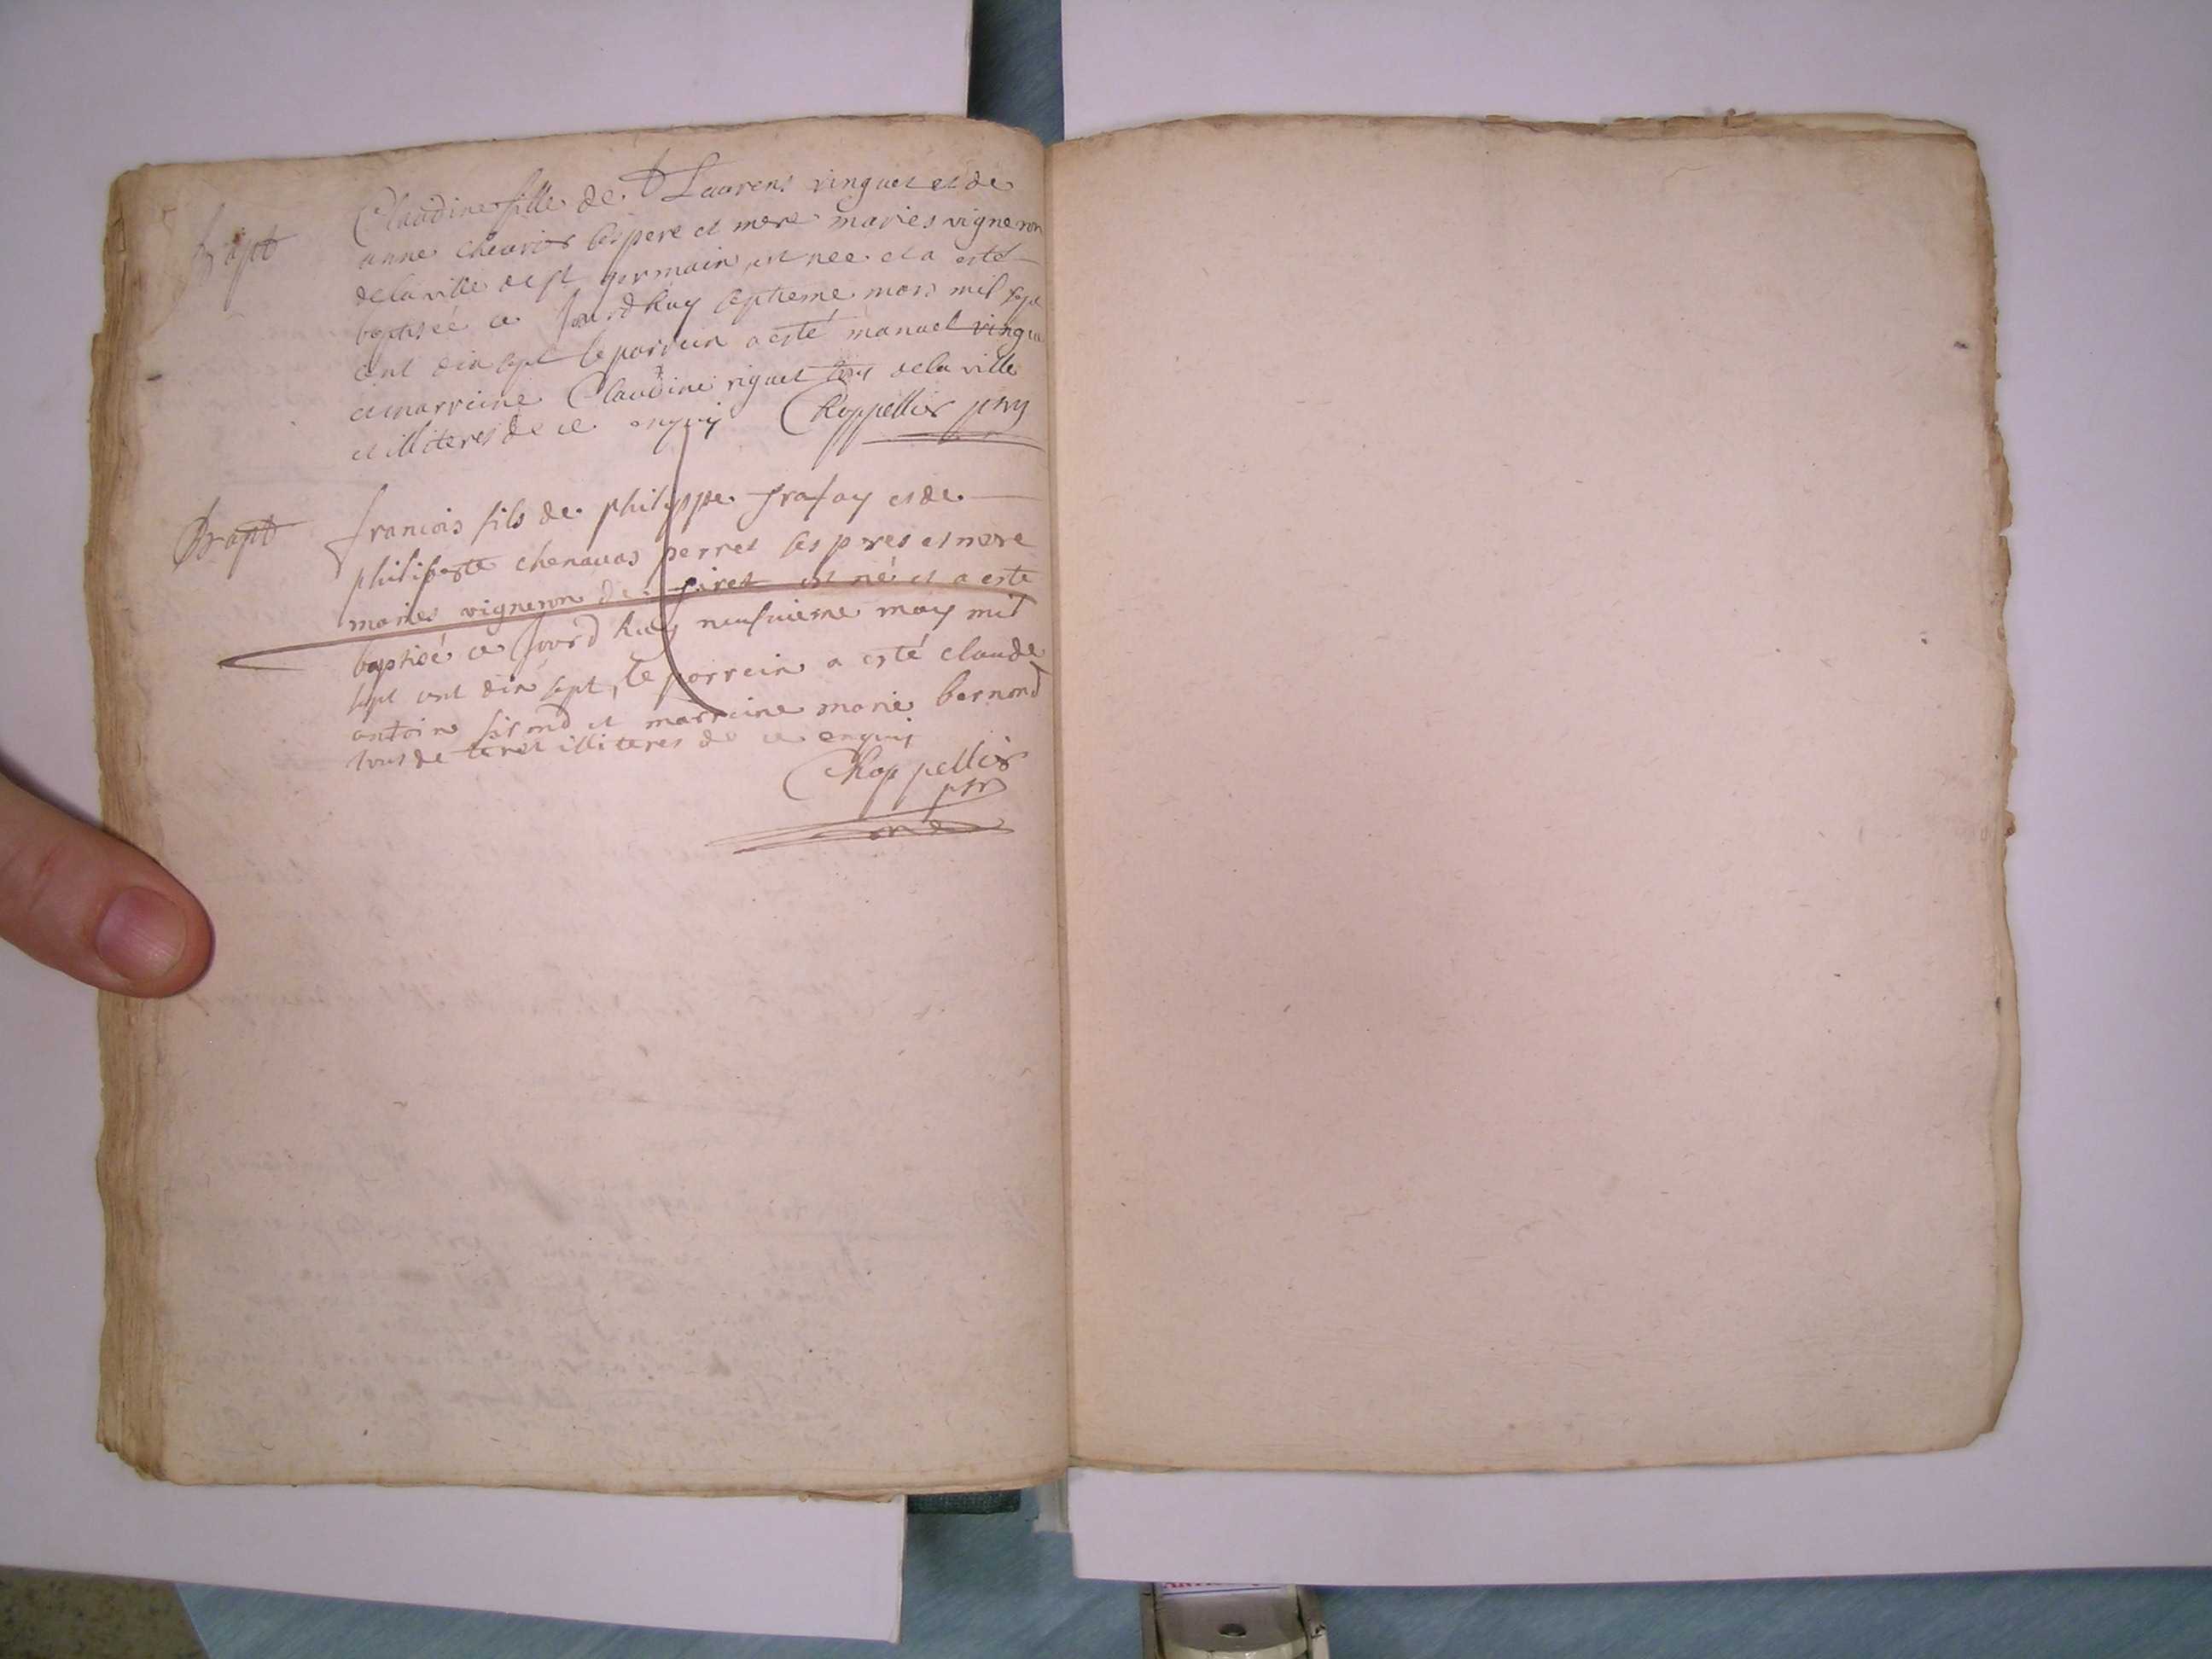 Bapt
Claudine fille de Laurens vinguet et de
anne chevrier ses pere et mere mariés vigneron
de la ville de st germain est née et a esté
baptisée ce jourdhuy septieme mars mil sept
cent dix sept le parrein a esté manuel
et marreine Claudine viguet tous de la ville
et illiteres de ce enquis Chappellier
Bapt
francois fils de philippe et de
chenavas perret ses peres et mere
mariés vigneron de est né et a esté
baptisé ce jourd huy neufvieme may mil
sept cent dix sept, le parrein a esté claude
antoine et marreine marie bernard
tous de illiteres de ce enquis
Chappellier